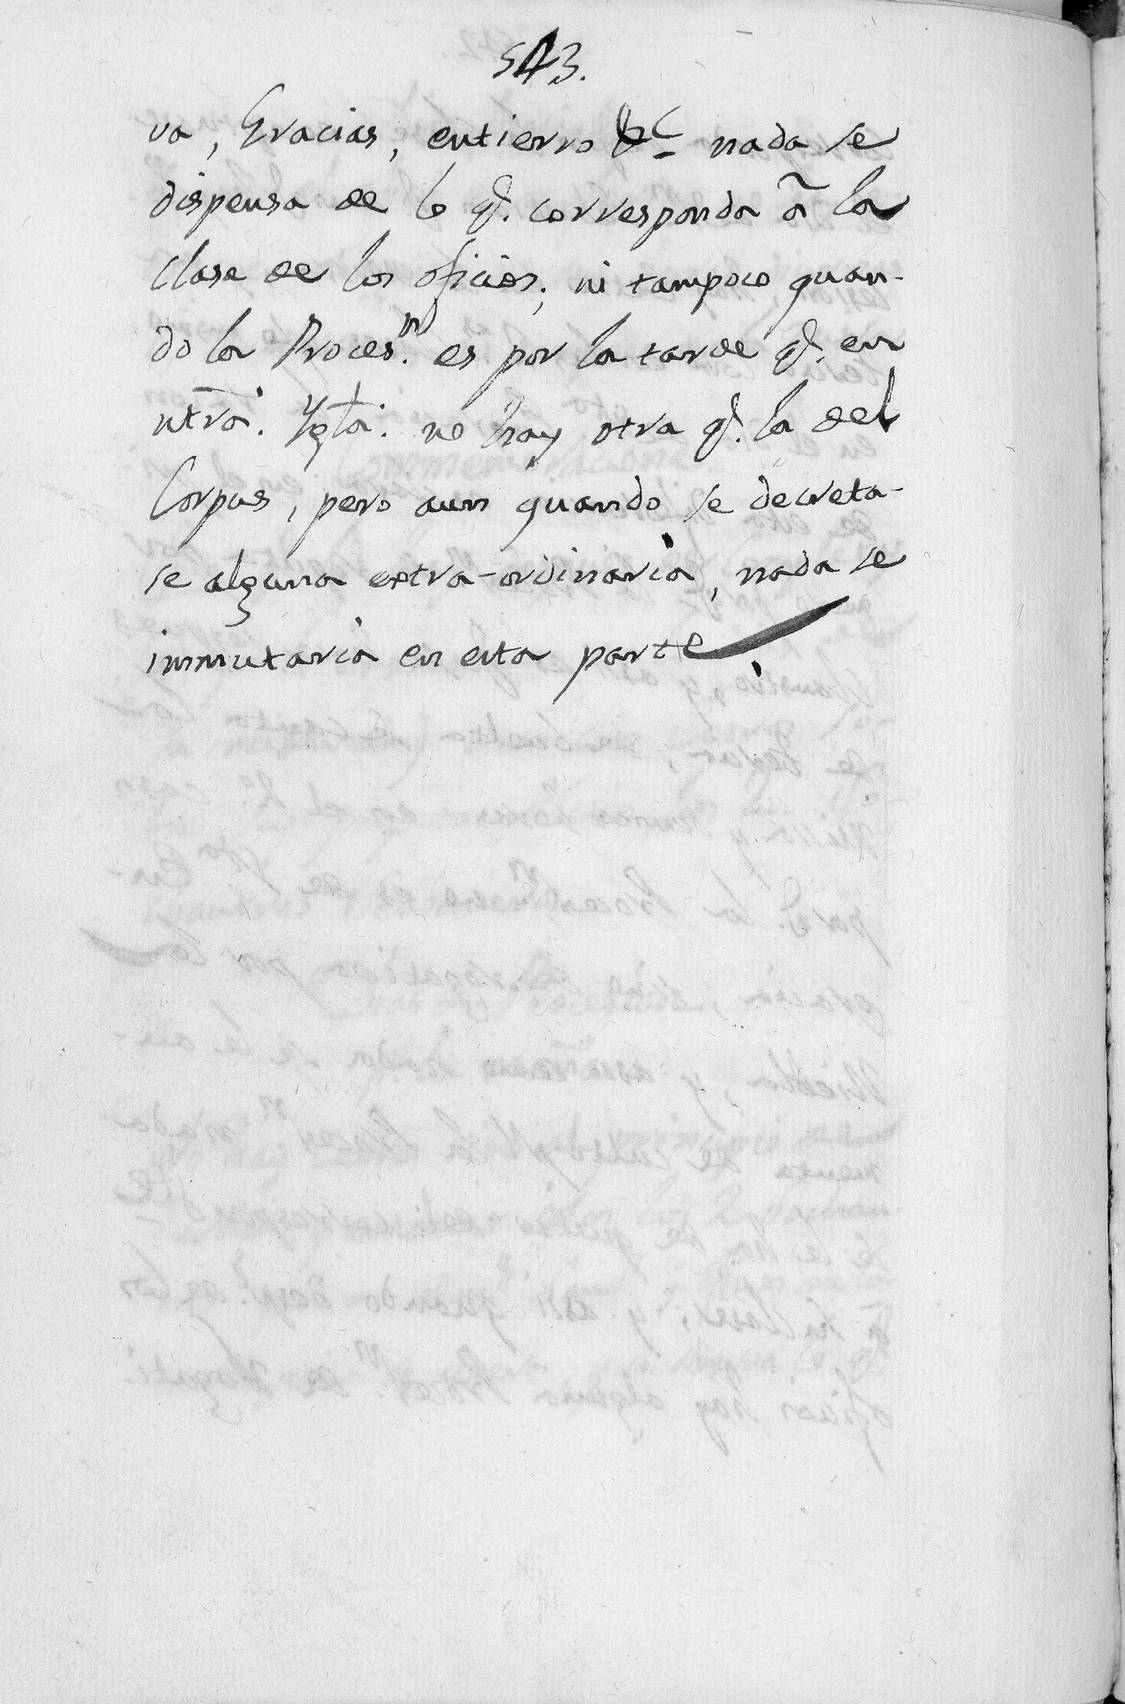 543.
va, Gracias, entierro &c nada se
dispensa de lo q. corresponda â la
clase de los oficios; ni tampoco quan-
do la Proces.n es por la tarde q. en
ntra. Ygla. no hay otra q. la del
Corpus, pero aun quando se decreta-
se alguna extra-ordinaria, nada se
inmutaria en esta parte